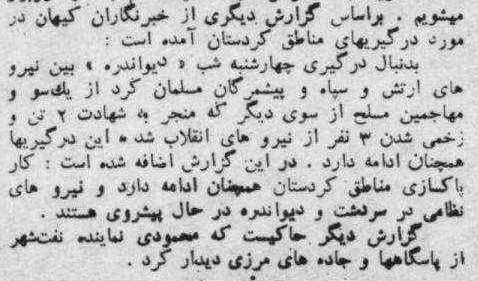 میشویم . براساس گزارش دیگری از خبرنگاران کیهان در
مورد درگیریهای مناطق کردستان آمده است :
بدنبال درگیری چهارشنبه شب « دیواندره » بین نیرو
های ارتش و سپاه و پیشمرگان مسلمان کرد از یك‌سو و
مهاجمین مسلح از سوی دیگر که منجر به شهادت ۲ تن و
زخمی شدن ۳ نفر از نیرو های انقلاب شد ، این درگیریها
همچنان ادامه دارد . در این گزارش اضافه شده است : کار
پاکسازی مناطق کردستان همچنان ادامه دارد و نیرو های
نظامی در سردشت و دیواندره در حال پیشروی هستند .
گزارش دیگر حاکیست که محمودی نماینده نفت‌شهر
از پاسگاهها و جاده های مرزی دیدار کرد .